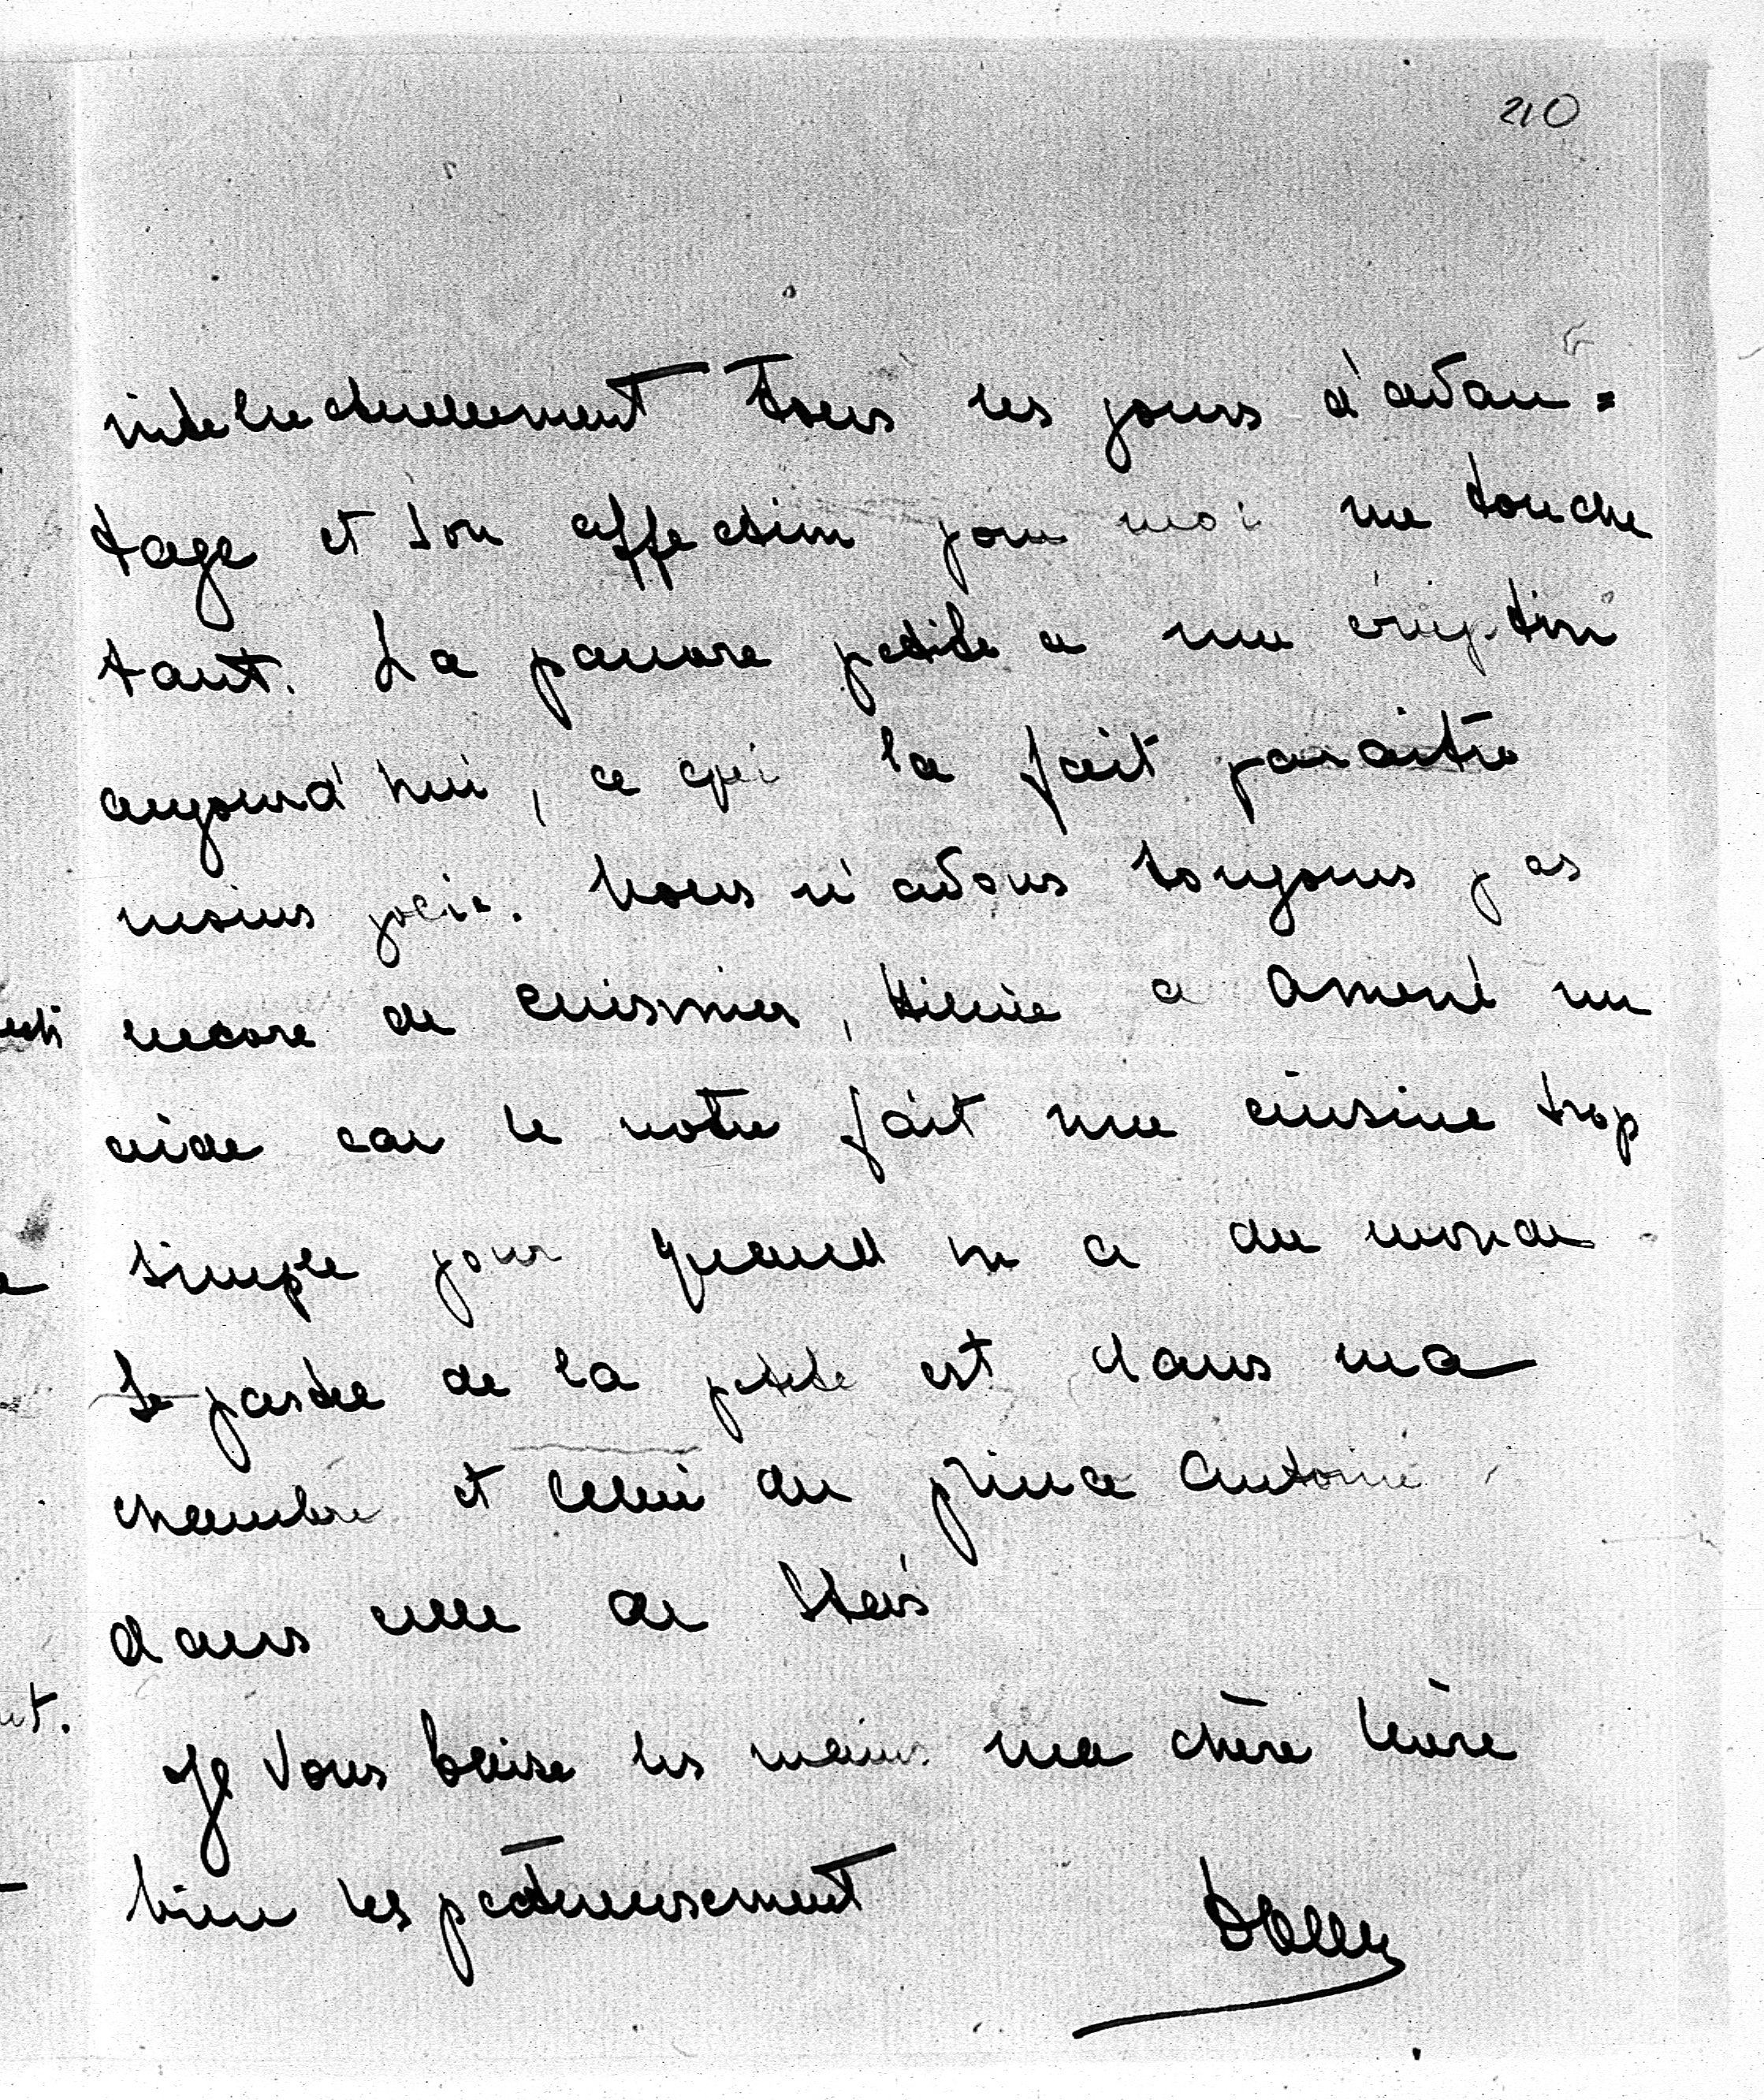 210
intellectuellement tous les jours d'avan=
tage et son affection pour moi me touche
tant. La pauvre petite a une éruption
aujourd'hui, ce qui la fait paraitre
moins jolie. Nous n'avons toujours pas
encore de cuisinier, a amené un
aide car le notre fait une cuisine trop
simple pour quand on a du monde.
Le pastel de la petite est dans ma
chambre et celui du prince Antoine
dans celle de Staś
Je vous baise les mains ma chère
bien respectueusement Dolly